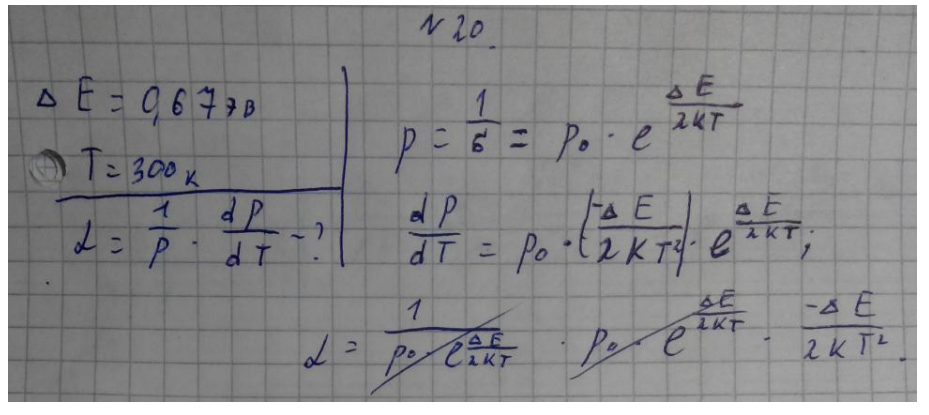 № 20.
Δ E = 0,67 эв
T = 300 к
α = 1/ρ · dρ/dT - ?
ρ = 1/б = ρ₀ · e^(ΔE/2кT)
dρ/dT = ρ₀ · (-ΔE/2кT²) · e^(ΔE/2кT);
α = 1/(ρ₀ · e^(ΔE/2кT)) · ρ₀ · e^(ΔE/2кT) · -ΔE/2кT².